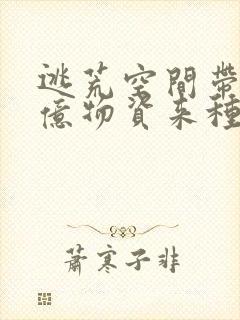 逃荒空間帶
億物資来種
蕭寒子非